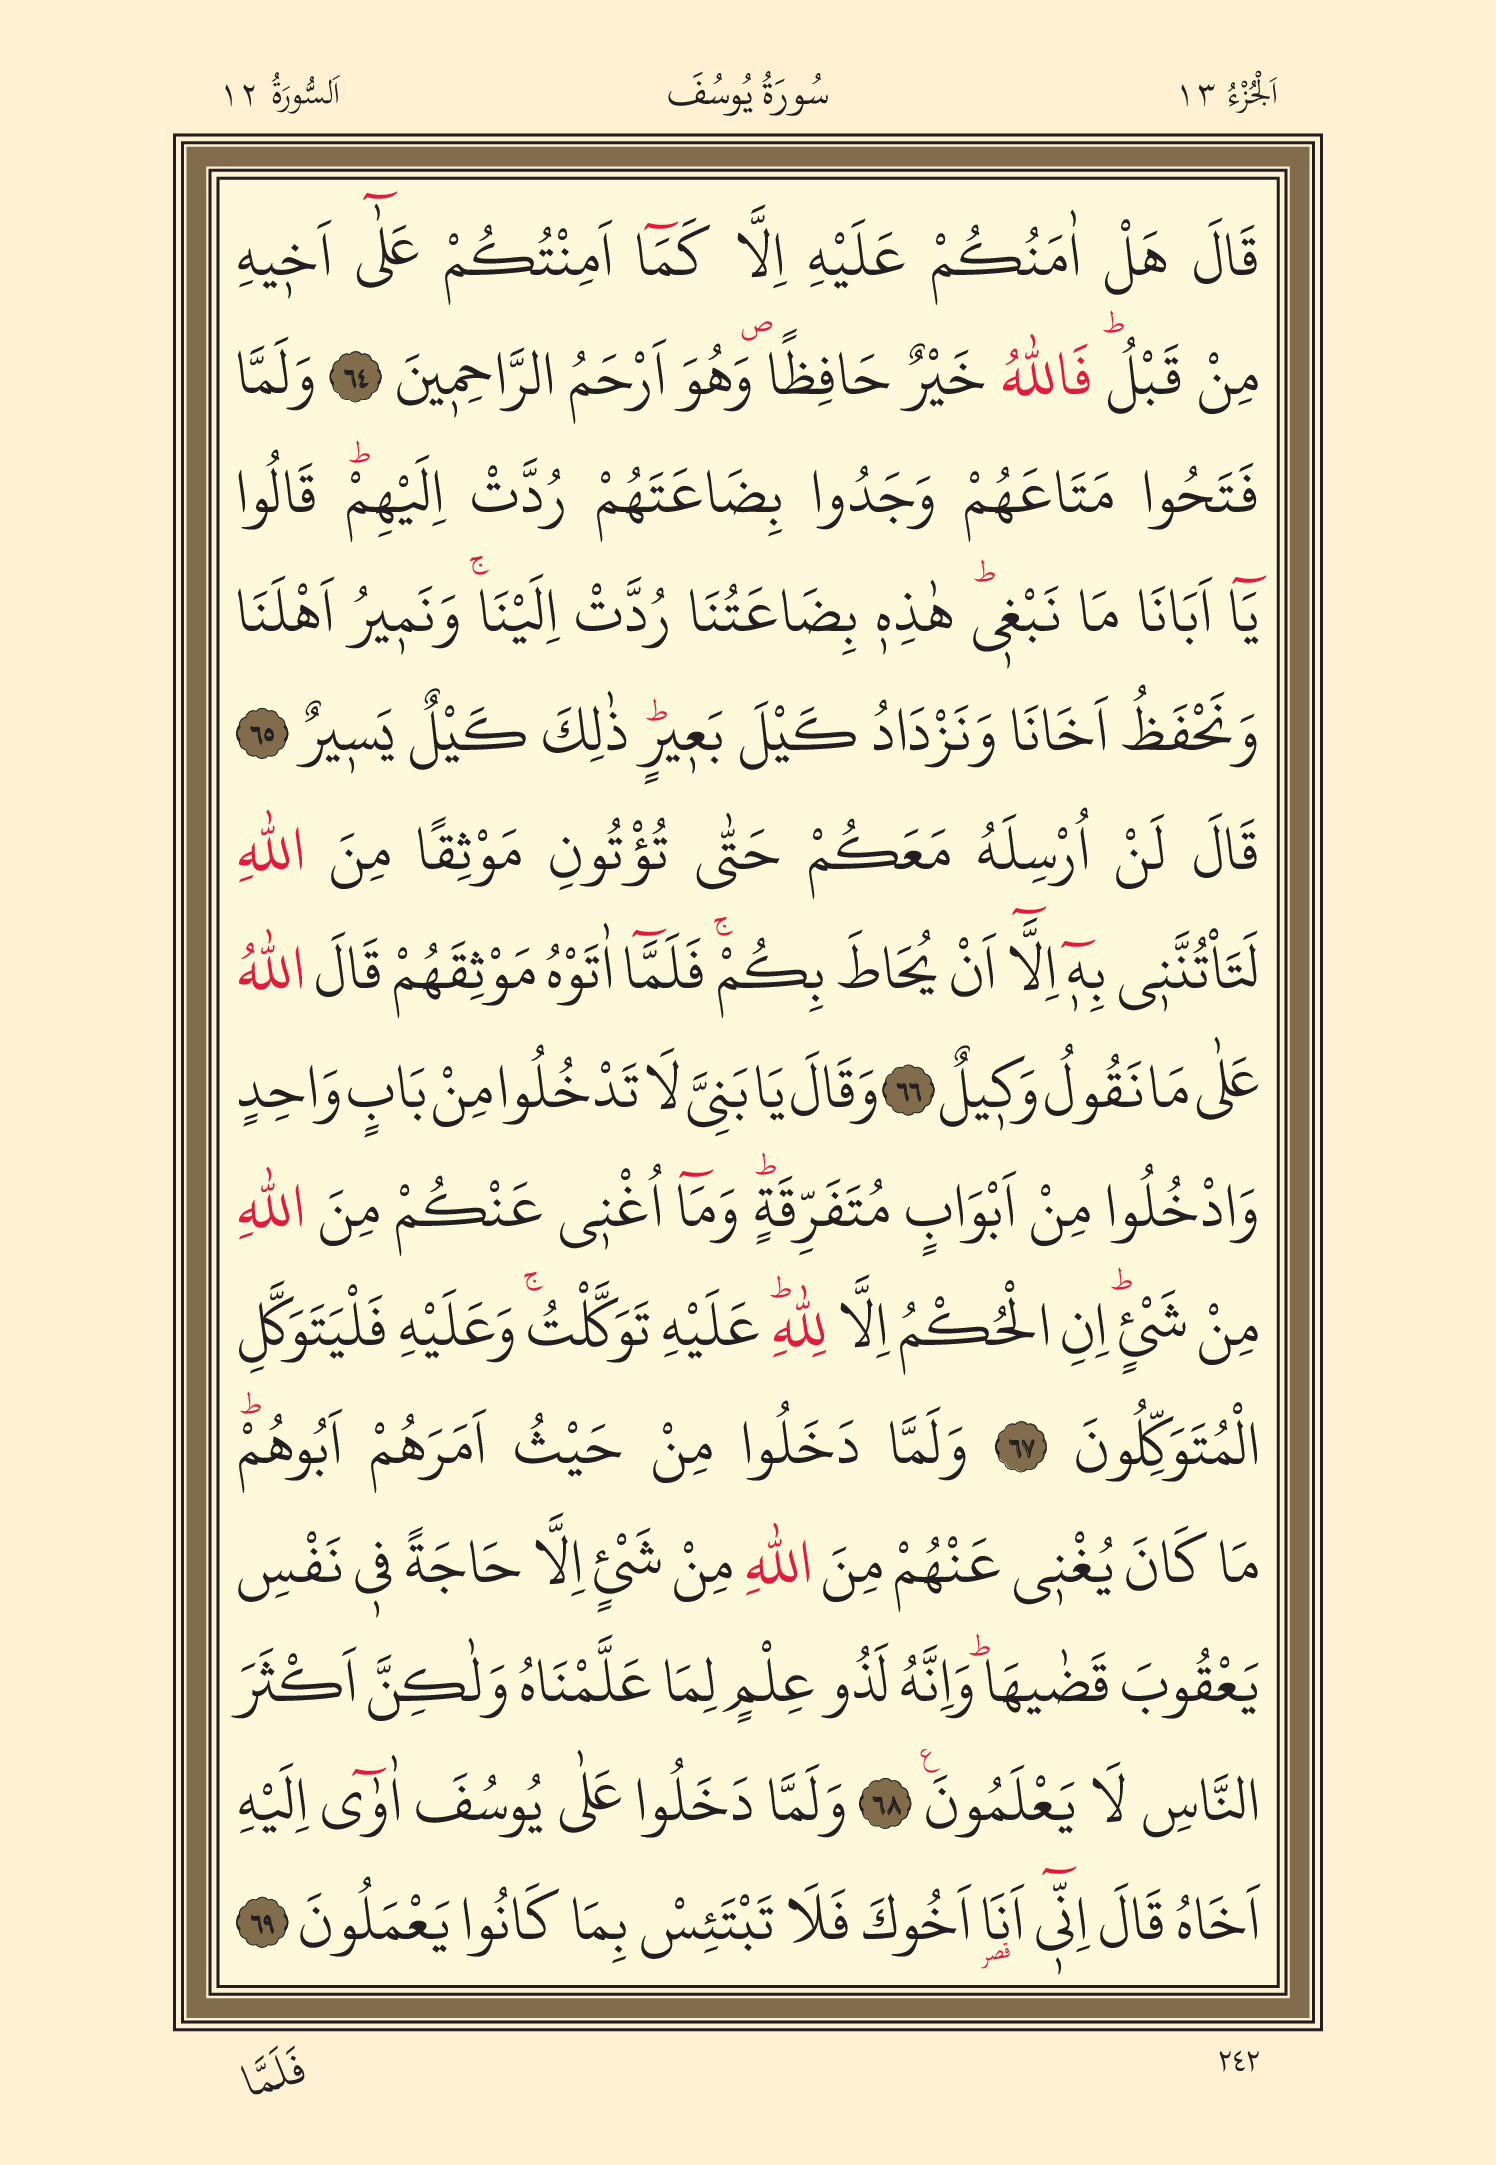 اَلْجُزْءُ ١٣ سُورَةُ يُوسُفَ اَلسُّورَةُ ١٢
قَالَ هَلْ اٰمَنُكُمْ عَلَيْهِ اِلَّا كَمَٓا اَمِنْتُكُمْ عَلٰٓى اَخ۪يهِ
مِنْ قَبْلُۜ فَاللّٰهُ خَيْرٌ حَافِظًاۖ وَهُوَ اَرْحَمُ الرَّاحِم۪ينَ ٦٤ وَلَمَّا
فَتَحُوا مَتَاعَهُمْ وَجَدُوا بِضَاعَتَهُمْ رُدَّتْ اِلَيْهِمْۜ قَالُوا
يَٓا اَبَانَا مَا نَبْغ۪يۜ هٰذِه۪ بِضَاعَتُنَا رُدَّتْ اِلَيْنَاۚ وَنَم۪يرُ اَهْلَنَا
وَنَحْفَظُ اَخَانَا وَنَزْدَادُ كَيْلَ بَع۪يرٍۜ ذٰلِكَ كَيْلٌ يَس۪يرٌ ٦٥
قَالَ لَنْ اُرْسِلَهُ مَعَكُمْ حَتّٰى تُؤْتُونِ مَوْثِقًا مِنَ اللّٰهِ
لَتَأْتُنَّن۪ي بِه۪ٓ اِلَّٓا اَنْ يُحَاطَ بِكُمْۚ فَلَمَّٓا اٰتَوْهُ مَوْثِقَهُمْ قَالَ اللّٰهُ
عَلٰى مَا نَقُولُ وَك۪يلٌ ٦٦ وَقَالَ يَا بَنِيَّ لَا تَدْخُلُوا مِنْ بَابٍ وَاحِدٍ
وَادْخُلُوا مِنْ اَبْوَابٍ مُتَفَرِّقَةٍۜ وَمَٓا اُغْن۪ي عَنْكُمْ مِنَ اللّٰهِ
مِنْ شَيْءٍۜ اِنِ الْحُكْمُ اِلَّا لِلّٰهِۜ عَلَيْهِ تَوَكَّلْتُۚ وَعَلَيْهِ فَلْيَتَوَكَّلِ
الْمُتَوَكِّلُونَ ٦٧ وَلَمَّا دَخَلُوا مِنْ حَيْثُ اَمَرَهُمْ اَبُوهُمْۜ
مَا كَانَ يُغْن۪ي عَنْهُمْ مِنَ اللّٰهِ مِنْ شَيْءٍ اِلَّا حَاجَةً ف۪ي نَفْسِ
يَعْقُوبَ قَضٰيهَاۜ وَاِنَّهُ لَذُو عِلْمٍ لِمَا عَلَّمْنَاهُ وَلٰكِنَّ اَكْثَرَ
النَّاسِ لَا يَعْلَمُونَ۟ ٦٨ وَلَمَّا دَخَلُوا عَلٰى يُوسُفَ اٰوٰٓى اِلَيْهِ
اَخَاهُ قَالَ اِنّ۪ٓي اَنَا۬ اَخُوكَ فَلَا تَبْتَئِسْ بِمَا كَانُوا يَعْمَلُونَ ٦٩
٢٤٢ فَلَمَّا